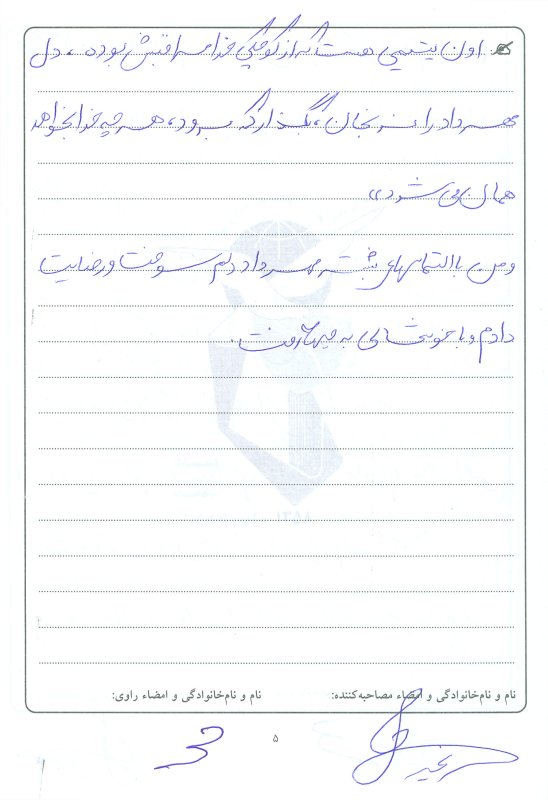 اون یتیمی هست که از کوچکی خدا مراقبش بوده، دل
مهرداد را نرنجان، بگذار که برود، هر چه خدا بخواهد
همان می شود»
و من با التماسهای بیشتر مهرداد دلم سوخت و رضایت
دادم و با خوشحالی به جبهه رفت.
نام و نام‌خانوادگی و امضاء مصاحبه‌کننده:
نام و نام‌خانوادگی و امضاء راوی:
۵